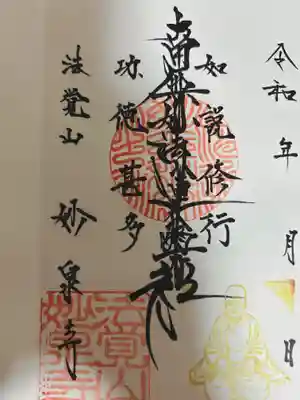 令和 年 月 日
如説修行
南無妙法蓮華経
功徳甚多
法覚山 妙泉寺